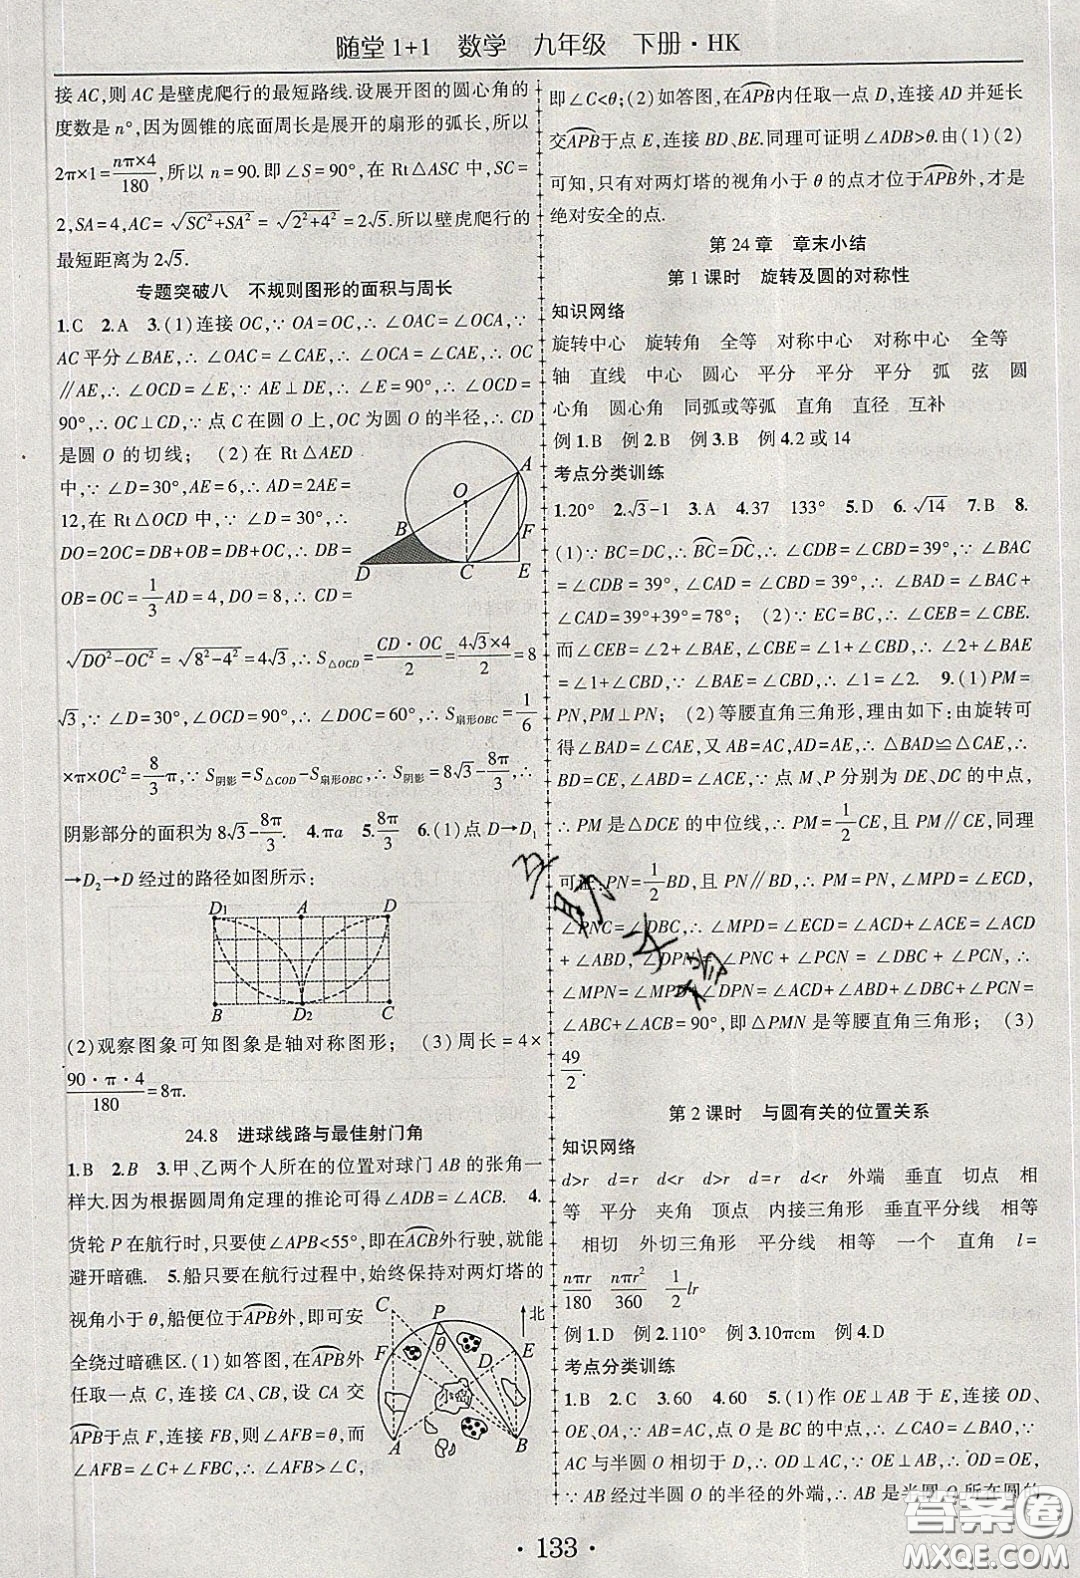 随堂1+1　数学　九年级　下册·HK
接 AC,则 AC 是壁虎爬行的最短路线.设展开图的圆心角的
度数是 n°,因为圆锥的底面周长是展开的扇形的弧长,所以
2π×1=nπ×4/180,所以 n=90.即∠S=90°,在 Rt△ASC 中,SC=
2,SA=4,AC=√(SC²+SA²)=√(2²+4²)=2√5.所以壁虎爬行的
最短距离为 2√5.
专题突破八　不规则图形的面积与周长
1.C　2.A　3.(1)连接 OC,∵OA=OC,∴∠OAC=∠OCA,∵
AC 平分∠BAE,∴∠OAC=∠CAE,∴∠OCA=∠CAE,∴OC
∥AE,∴∠OCD=∠E,∵AE⊥DE,∴∠E=90°,∴∠OCD=
90°,∴OC⊥CD,∵点 C 在圆 O 上,OC 为圆 O 的半径,∴CD
是圆 O 的切线；(2)在 Rt△AED
中,∵∠D=30°,AE=6,∴AD=2AE=
12,在 Rt△OCD 中,∵∠D=30°,∴
DO=2OC=DB+OB=DB+OC,∴DB=
OB=OC=1/3 AD=4,DO=8,∴CD=
√(DO²-OC²)=√(8²-4²)=4√3,∴S△OCD=CD·OC/2=4√3×4/2=8
√3,∵∠D=30°,∠OCD=90°,∴∠DOC=60°,∴S扇形OBC=1/6
×π×OC²=8/3 π,∵S阴影=S△COD-S扇形OBC,∴S阴影=8√3-8π/3,∴
阴影部分的面积为 8√3-8π/3.　4.πa　5.8π/3　6.(1)点 D→D₁
→D₂→D 经过的路径如图所示：
A
O
B
F
D
C
E
D₁
A
D
B
D₂
C
(2)观察图象可知图象是轴对称图形；(3)周长=4×
90·π·4/180=8π.
24.8　进球线路与最佳射门角
1.B　2.B　3.甲、乙两个人所在的位置对球门 AB 的张角一
样大.因为根据圆周角定理的推论可得∠ADB=∠ACB.　4.
货轮 P 在航行时,只要使∠APB<55°,即在ACB外行驶,就能
避开暗礁.　5.船只要在航行过程中,始终保持对两灯塔的
视角小于 θ,船便位于APB外,即可安
全绕过暗礁区.(1)如答图,在APB外
任取一点 C,连接 CA、CB,设 CA 交
APB于点 F,连接 FB,则∠AFB=θ,而
∠AFB=∠C+∠FBC,∴∠AFB>∠C,
C
P
北
θ
F
D
E
小岛
A
B
即∠C<θ；(2)如答图,在APB内任取一点 D,连接 AD 并延长
交APB于点 E,连接 BD、BE.同理可证明∠ADB>θ.由(1)(2)
可知,只有对两灯塔的视角小于 θ 的点才位于APB外,才是
绝对安全的点.
第 24 章　章末小结
第 1 课时　旋转及圆的对称性
知识网络
旋转中心　旋转角　全等　对称中心　对称中心　全等
轴　直线　中心　圆心　平分　平分　平分　弧　弦　圆
心角　圆心角　同弧或等弧　直角　直径　互补
例 1.B　例 2.B　例 3.B　例 4.2 或 14
考点分类训练
1.20°　2.√3-1　3.A　4.37　133°　5.D　6.√14　7.B　8.
(1)∵BC=DC,∴BC=DC,∴∠CDB=∠CBD=39°,∵∠BAC
=∠CDB=39°,∠CAD=∠CBD=39°,∴∠BAD=∠BAC+
∠CAD=39°+39°=78°；(2)∵EC=BC,∴∠CEB=∠CBE.
而∠CEB=∠2+∠BAE,∠CBE=∠1+∠CBD,∴∠2+∠BAE
=∠1+∠CBD,∵∠BAE=∠CBD,∴∠1=∠2.　9.(1)PM=
PN,PM⊥PN；(2)等腰直角三角形,理由如下:由旋转可
得∠BAD=∠CAE,又 AB=AC,AD=AE,∴△BAD≌△CAE,∴
BD=CE,∠ABD=∠ACE,∵点 M、P 分别为 DE、DC 的中点,
∴PM 是△DCE 的中位线,∴PM=1/2 CE,且 PM∥CE,同理
可证,PN=1/2 BD,且 PN∥BD,∴PM=PN,∠MPD=∠ECD,
∠PNC=∠DBC,∴∠MPD=∠ECD=∠ACD+∠ACE=∠ACD
+∠ABD,∠DPN=∠PNC+∠PCN=∠DBC+∠PCN,∴
∠MPN=∠MPD+∠DPN=∠ACD+∠ABD+∠DBC+∠PCN=
∠ABC+∠ACB=90°,即△PMN 是等腰直角三角形；(3)
49/2.
第 2 课时　与圆有关的位置关系
知识网络
d>r　d=r　d<r　d>r　d=r　d<r　外端　垂直　切点　相
等　平分　夹角　顶点　内接三角形　垂直平分线　相等
相切　外切三角形　平分线　相等　一个　直角　l=
nπr/180　nπr²/360　1/2 lr
例 1.D　例 2.110°　例 3.10πcm　例 4.D
考点分类训练
1.B　2.C　3.60　4.60　5.(1)作 OE⊥AB 于 E,连接 OD、
OE、OA,∵AB=AC,点 O 是 BC 的中点,∴∠CAO=∠BAO,∵
AC 与半圆 O 相切于 D,∴OD⊥AC,∵OE⊥AB,∴OD=OE,
∵AB 经过半圆 O 的半径的外端,∴AB 是半圆 O 所在圆的
互助文档
·133·
答案圈
MXQE.COM